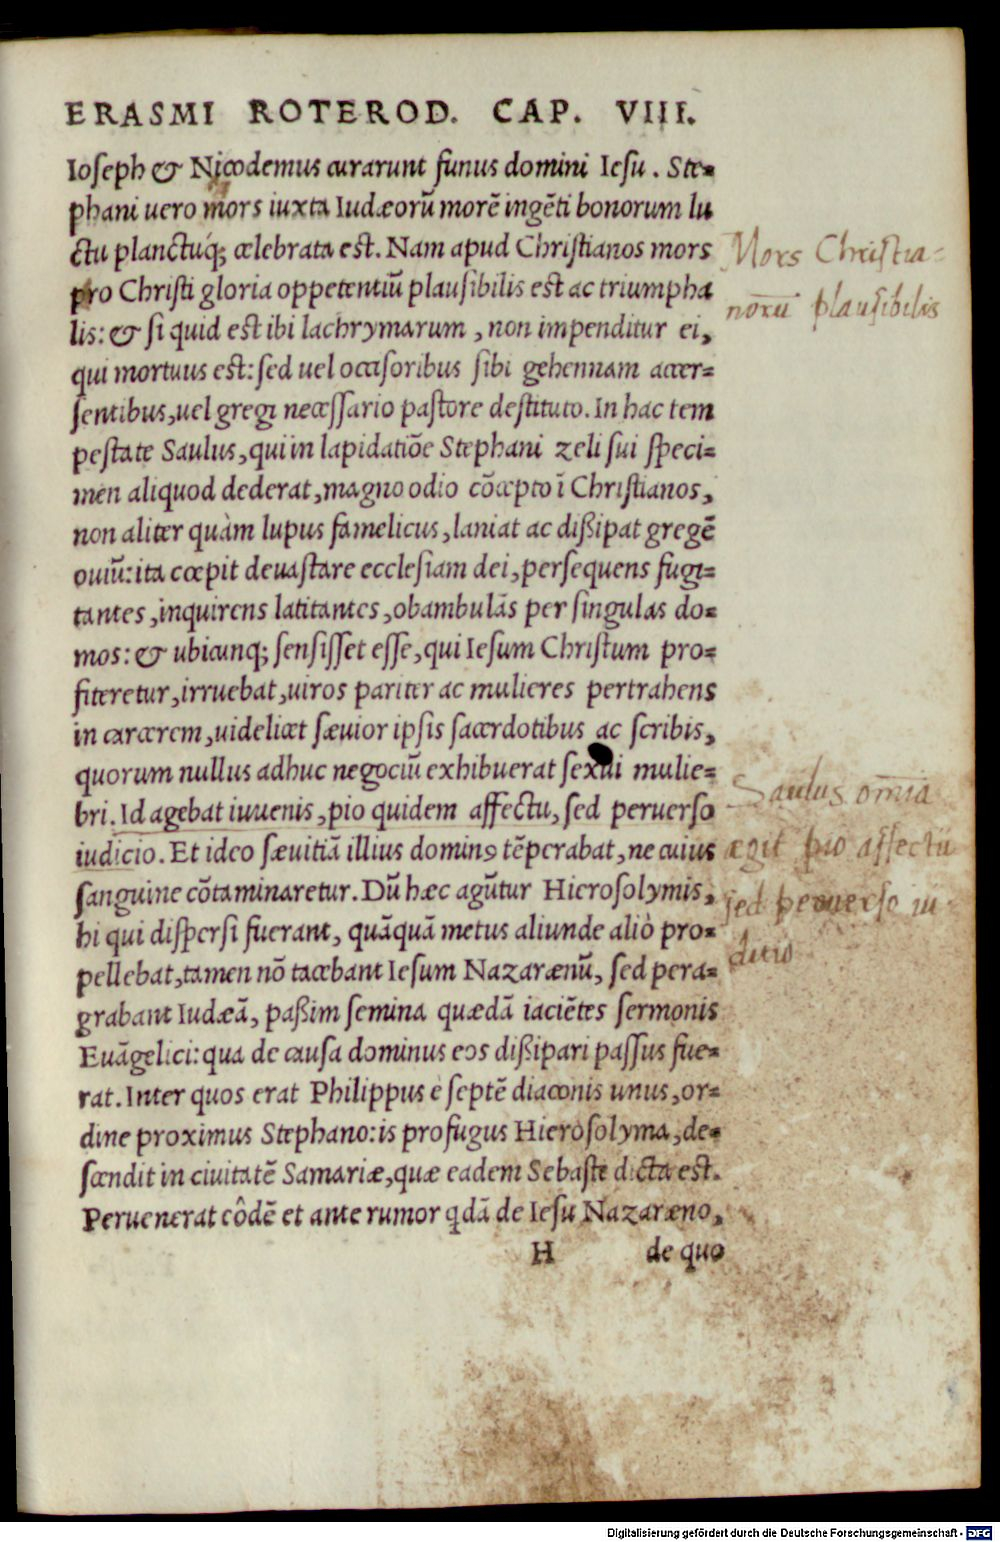 ERASMI ROTEROD. CAP. VIII.
Ioseph & Nicodemus curarunt funus domini Iesu. Ste=
phani uero mors iuxta Iudæorũ morẽ ingẽti bonorum lu
ctu planctuq́; celebrata est. Nam apud Christianos mors
pro Christi gloria oppetentiũ plausibilis est ac triumpha
lis: & si quid est ibi lachrymarum, non impenditur ei,
qui mortuus est: sed uel occisoribus sibi gehennam accer=
sentibus, uel gregi necessario pastore destituto. In hac tem
pestate Saulus, qui in lapidatiõe Stephani zeli sui speci=
men aliquod dederat, magno odio cõcepto ĩ Christianos,
non aliter quàm lupus famelicus, laniat ac dißipat gregẽ
ouiũ: ita cœpit deuastare ecclesiam dei, persequens fugi=
tantes, inquirens latitantes, obambulãs per singulas do=
mos: & ubicunq; sensisset esse, qui Iesum Christum pro=
fiteretur, irruebat, uiros pariter ac mulieres pertrahens
in carcerem, uidelicet sæuior ipsis sacerdotibus ac scribis,
quorum nullus adhuc negociũ exhibuerat sexui mulie=
bri. Id agebat iuuenis, pio quidem affectu, sed peruerso
iudicio. Et ideo sæuitiã illius dominꝰ tẽperabat, ne cuius
sanguine cõtaminaretur. Dũ hæc agũtur Hierosolymis,
hi qui dispersi fuerant, quãquã metus aliunde aliò pro=
pellebat, tamen nõ tacebant Iesum Nazarænũ, sed pera=
grabant Iudæã, paßim semina quædã iaciẽtes sermonis
Euãgelici: qua de causa dominus eos dißipari passus fue=
rat. Inter quos erat Philippus è septẽ diaconis unus, or=
dine proximus Stephano: is profugus Hierosolyma, de=
scendit in ciuitatẽ Samariæ, quæ eadem Sebaste dicta est.
Peruenerat eôdẽ et ante rumor qdã de Iesu Nazaræno,
H de quo
Mors Christia=
norũ plausibilis
Saulus omĩa
ægit pio affectũ
sed peruerso iu-
ditio
Digitalisierung gefördert durch die Deutsche Forschungsgemeinschaft - DFG